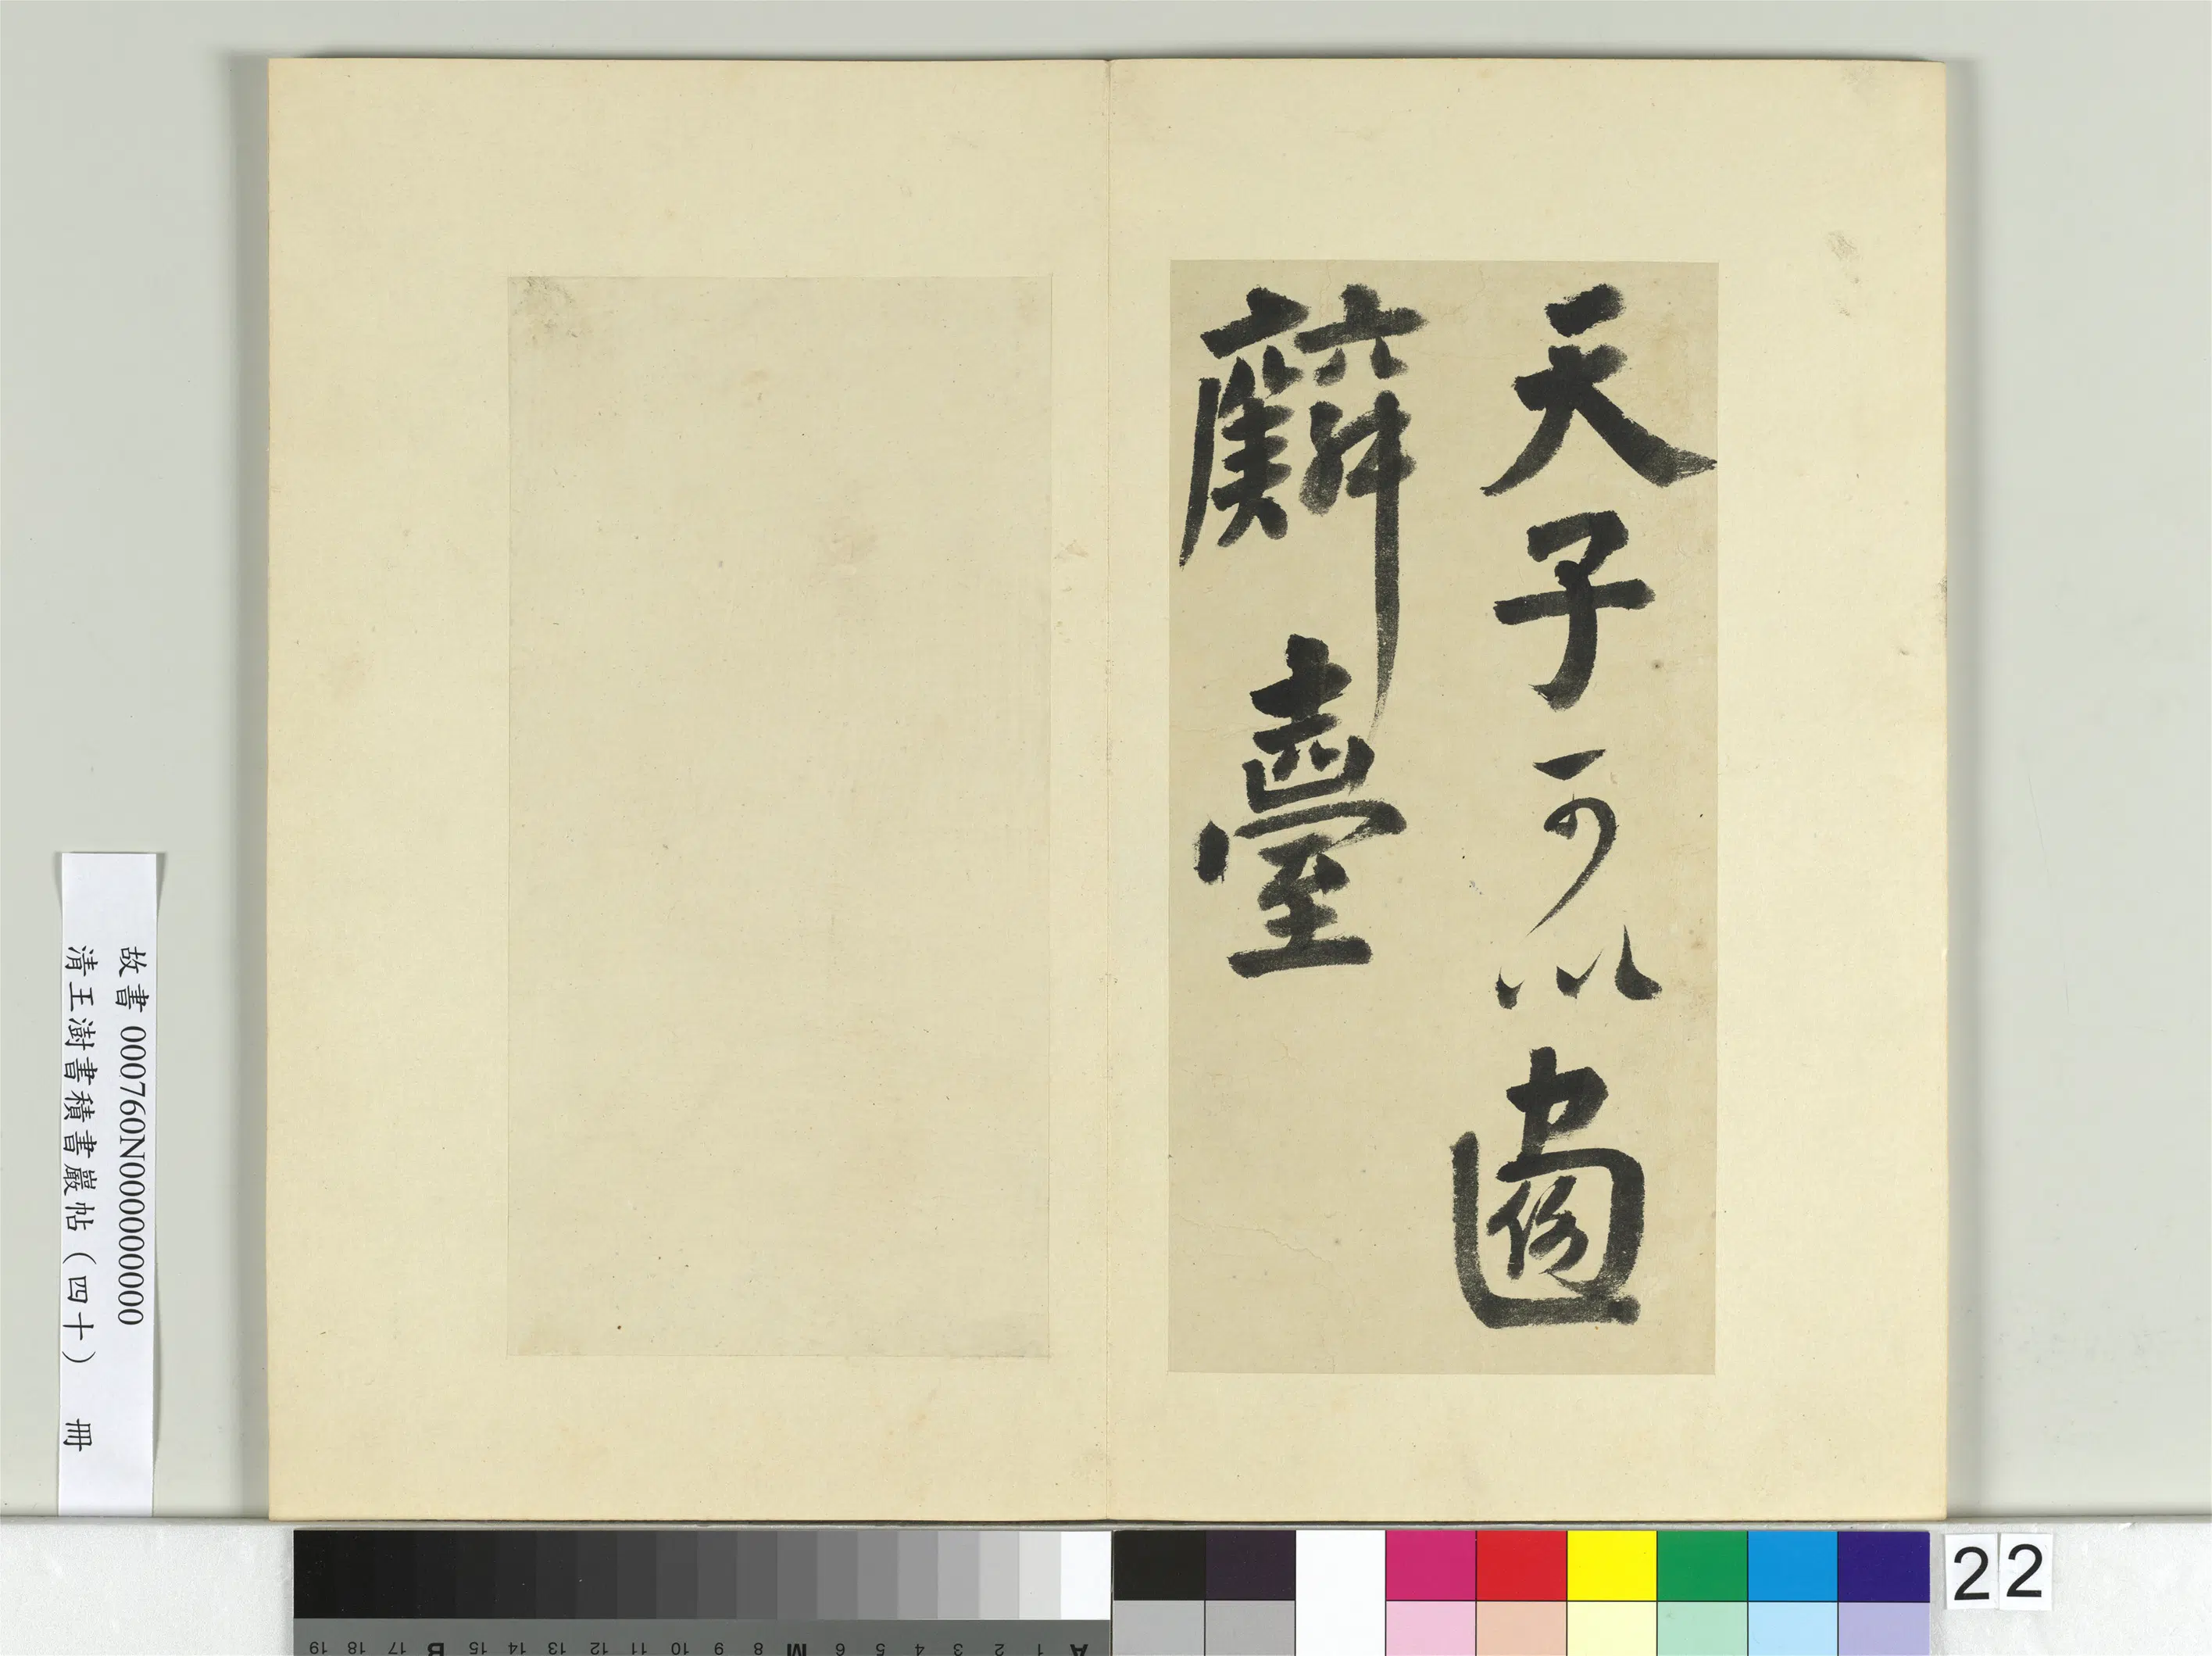 天子可以畫
麟臺
故書 000760N000000000
清王澍書積書巖帖（四十） 冊
22
A 1 2 3 4 5 6 M 8 9 10 11 12 13 14 15 B 17 18 19